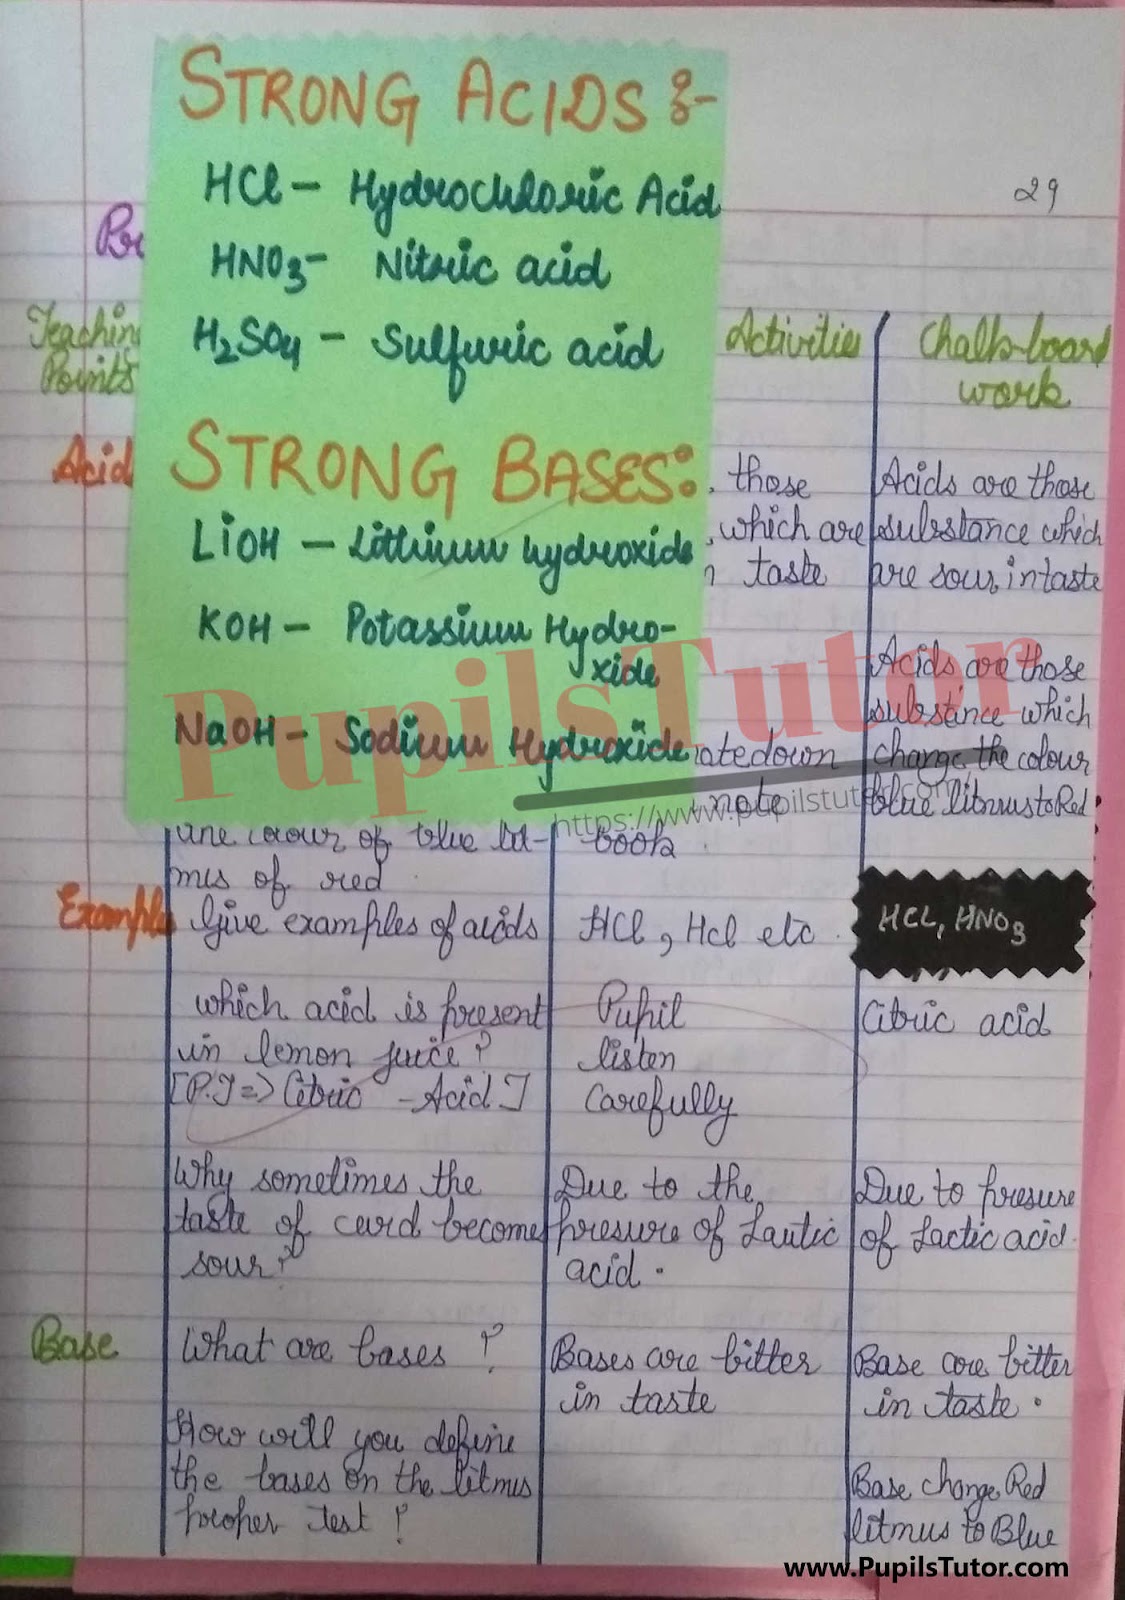 STRONG ACIDS :-
HCl - Hydrochloric Acid
HNO3 - Nitric acid
H2SO4 - Sulfuric acid
STRONG BASES:
LiOH - Lithium hydroxide
KOH - Potassium Hydro-
xide
NaOH - Sodium Hydroxide
29
Teaching
Points
Activities
Chalk-board
work
Acid
those
which are
taste
Acids are those
substance which
are sour in taste
Acids are those
substance which
change the colour
blue litmus to Red
down
note
book
colour of blue lit-
mus of red
Example
Give examples of acids
HCl, Hcl etc.
HCL, HNO3
which acid is present
in lemon juice?
[P.T => Citric - Acid]
Pupil
listen
Carefully
Citric acid
Why sometimes the
taste of curd becomes
sour?
Due to the
presure of Lautic
acid.
Due to presure
of Lactic acid.
Base
What are bases ?
Bases are bitter
in taste
Base are bitter
in taste.
How will you define
the bases on the litmus
proper test ?
Base change Red
litmus to Blue
PupilsTutor
https://www.pupilstutor.com
www.PupilsTutor.com